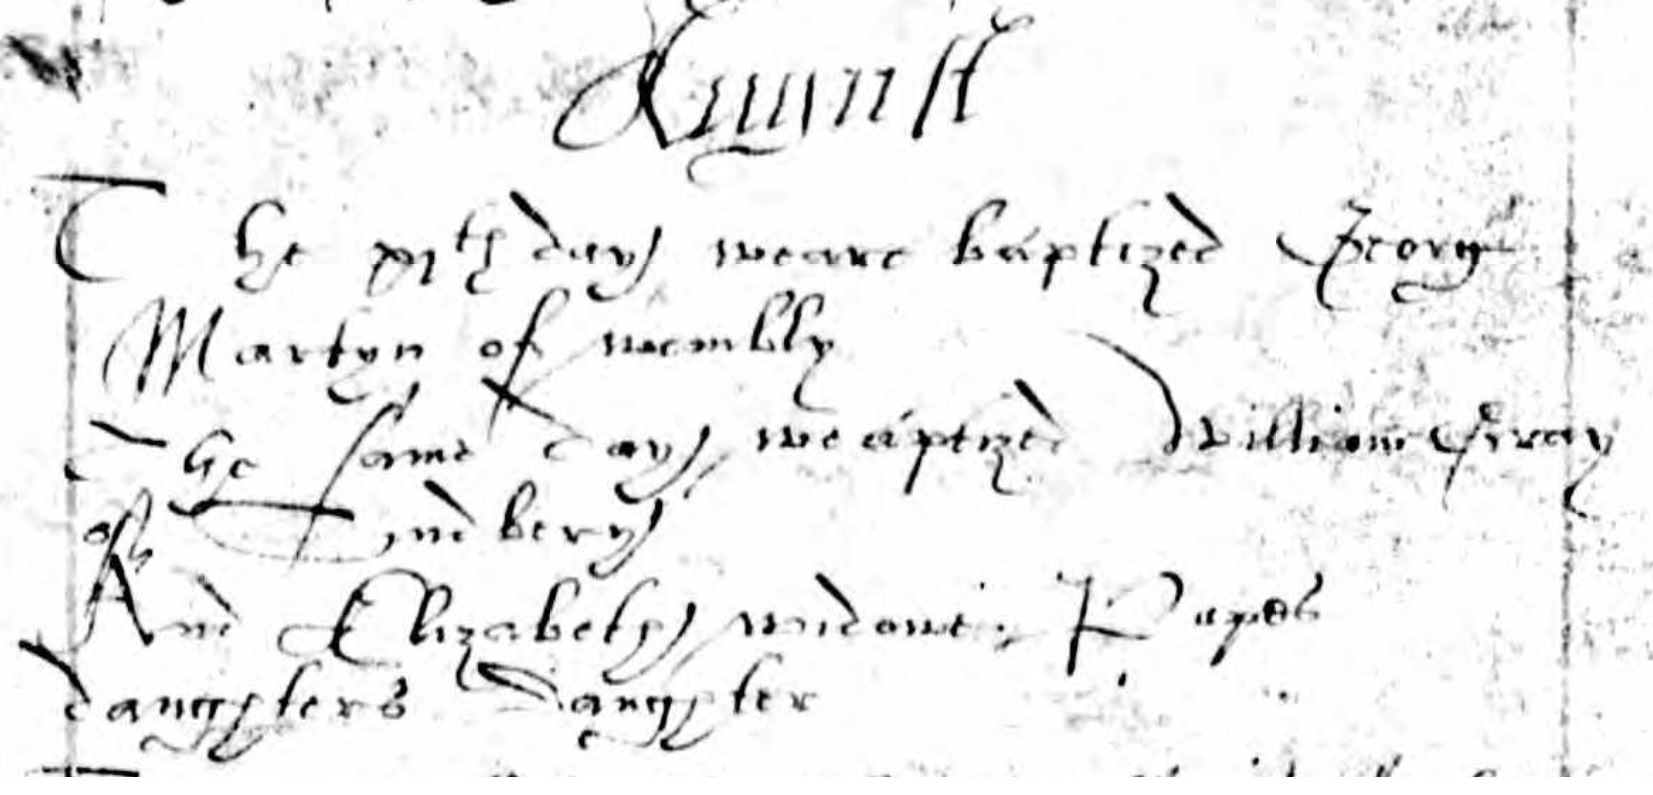 August
The xith day weare baptized George
Martyn of wembly
The same day we baptized William Gray
of Tindbery
And Elizabeth widowe Papes
daughters daughter